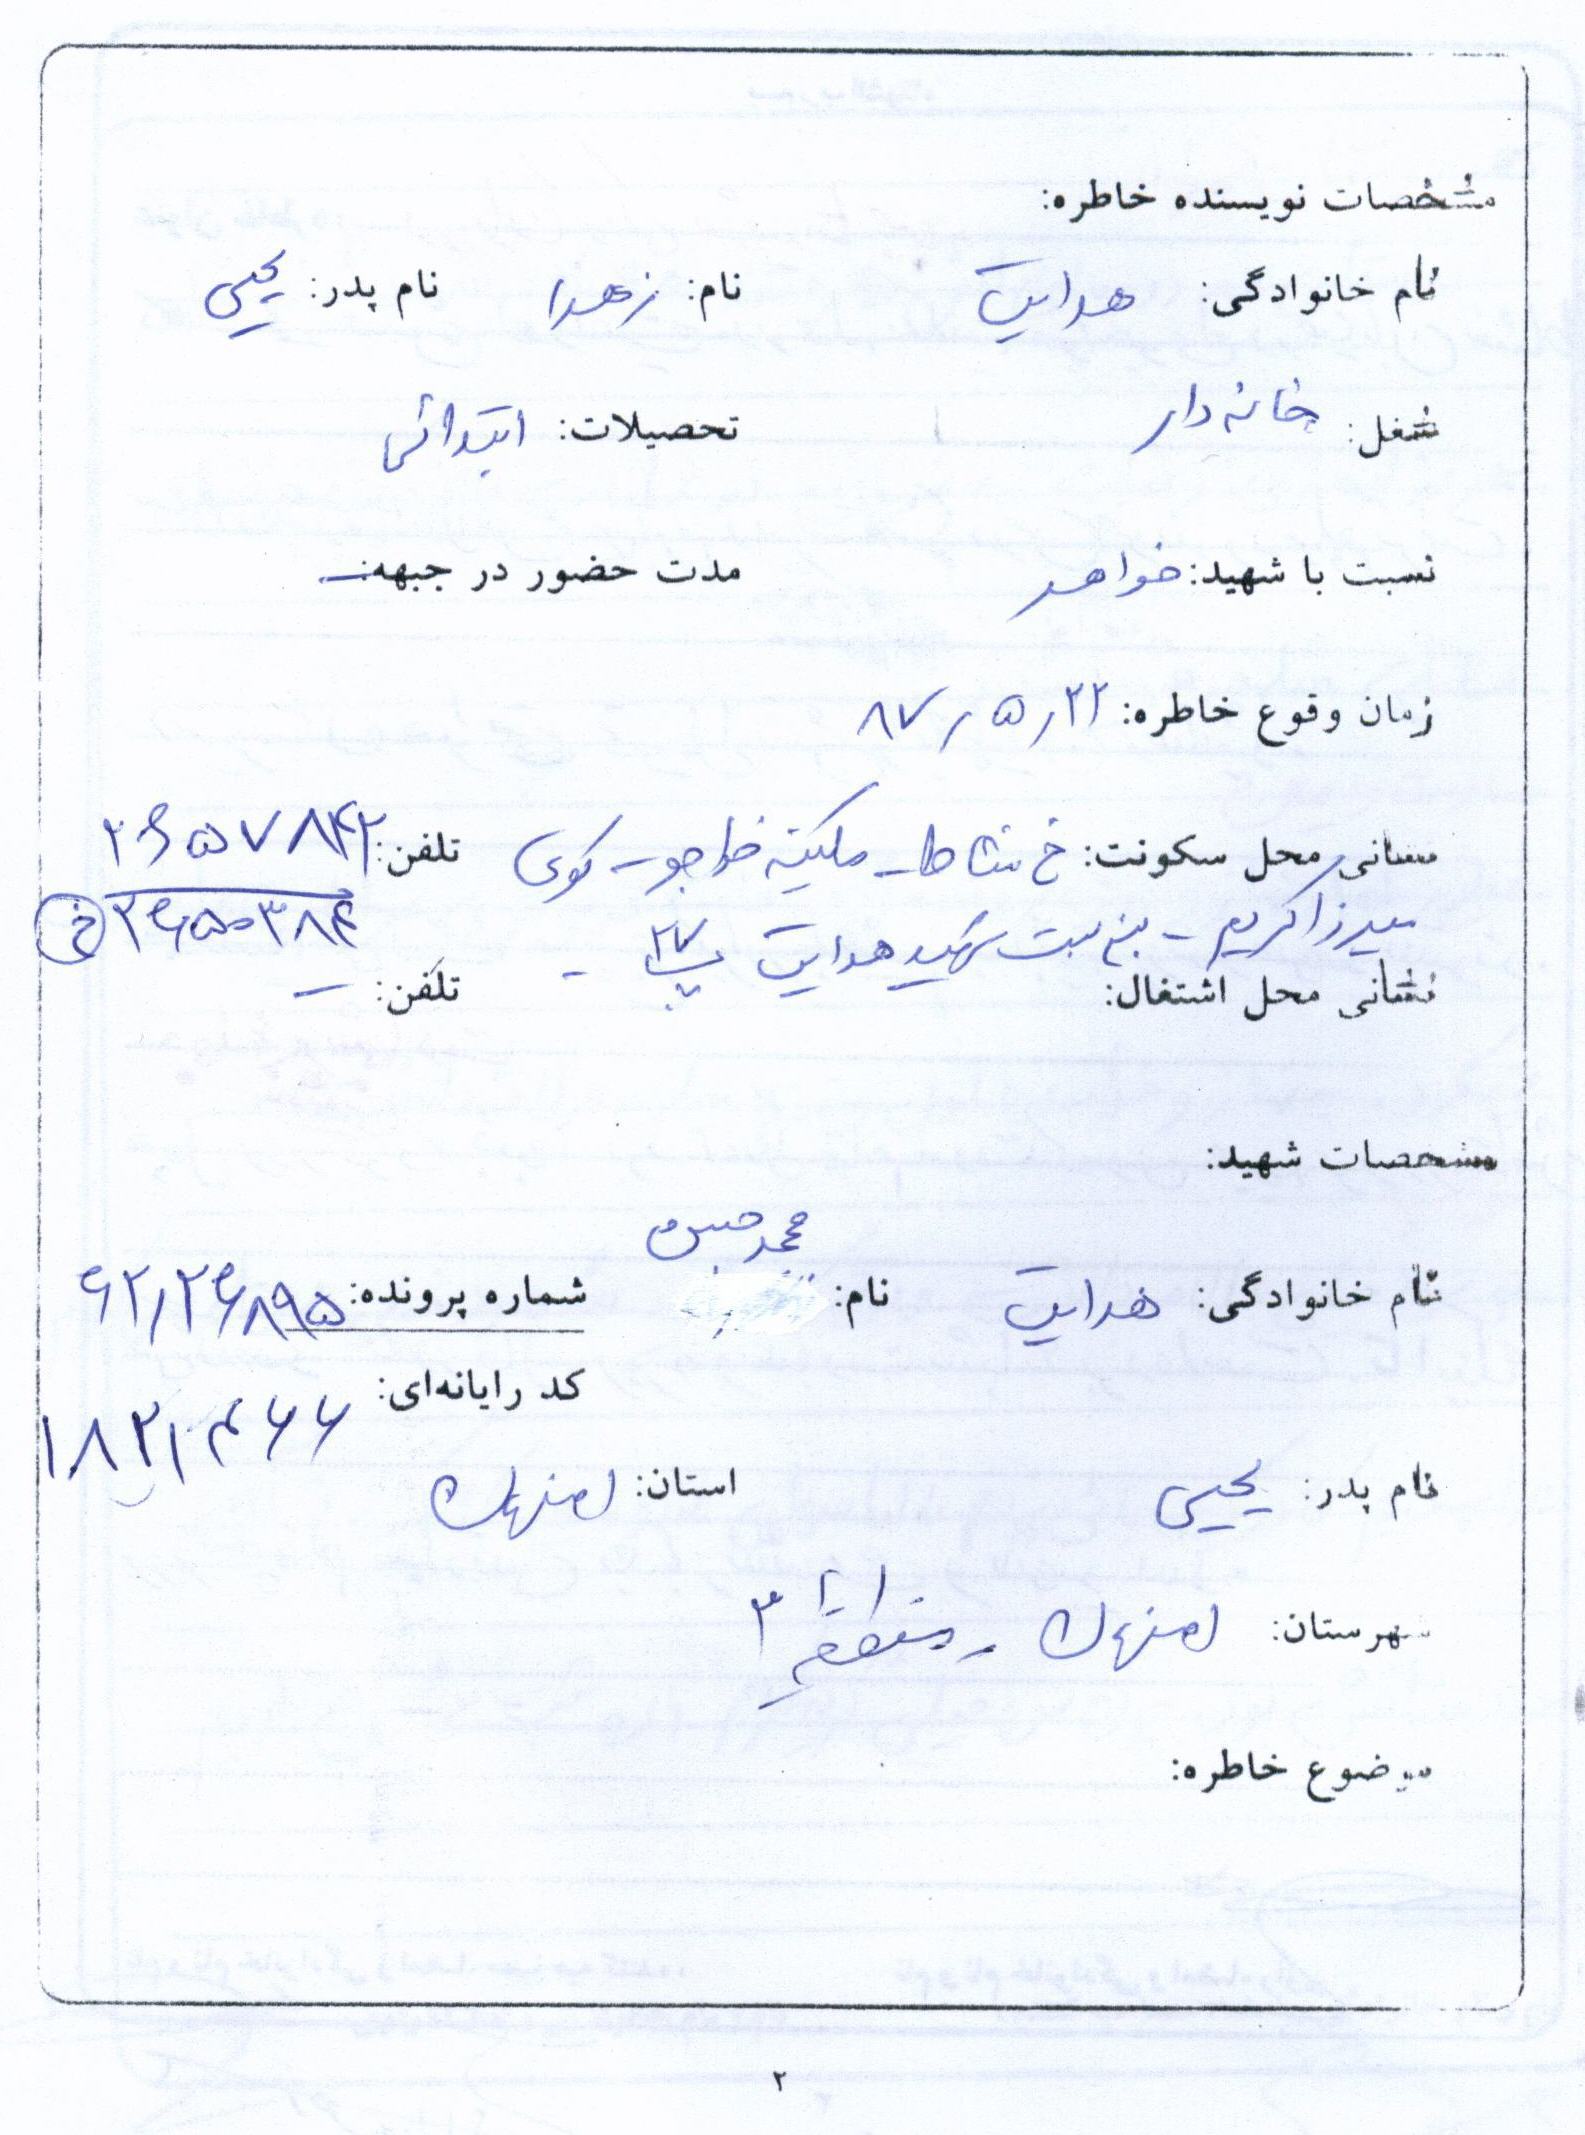 مشخصات نویسنده خاطره:
نام خانوادگی: هدایت نام: زهرا نام پدر: یحیی
شغل: خانه دار تحصیلات: ابتدائی
نسبت با شهید: خواهر مدت حضور در جبهه: ـ
زمان وقوع خاطره: ۸۷/۵/۲۲
نشانی محل سکونت: خ نشاط ـ خواجو ـ کوی تلفن: ۲۶۵۷۸۴۲
میرزا کریم ـ بن بست شهید هدایت پ ۲۷ ـ ۲۶۵۰۳۸۴
نشانی محل اشتغال: تلفن: ـ
مشخصات شهید:
نام خانوادگی: هدایت نام: محمدحسن شماره پرونده: ۶۲/۲۶۸۹۵
کد رایانه‌ای: ۱۸۲۱۴۶۶
نام پدر: یحیی استان: اصفهان
شهرستان: اصفهان ـ منطقه ۳
موضوع خاطره:
۲